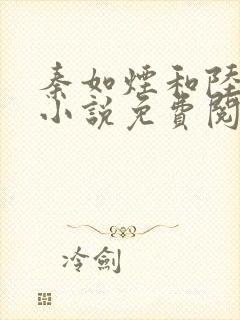 秦如煙和陸
小說免費閱
冷劍